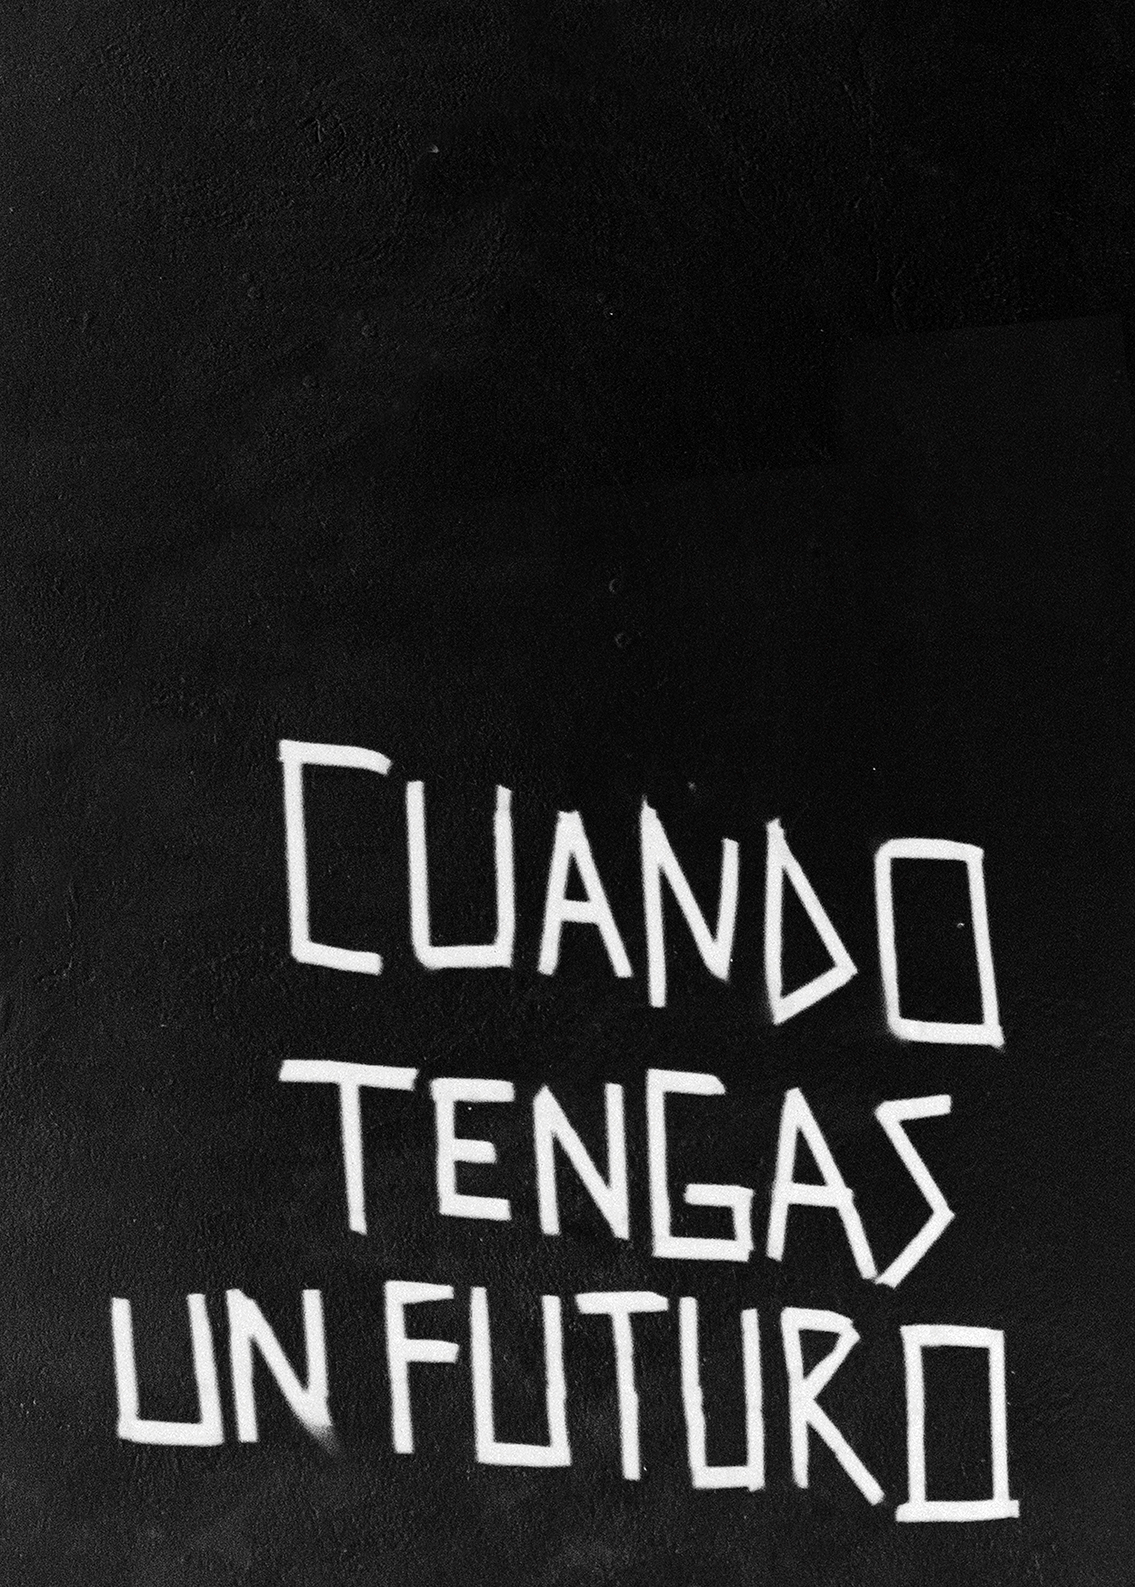 CUANDO
TENGAS
UN FUTURO